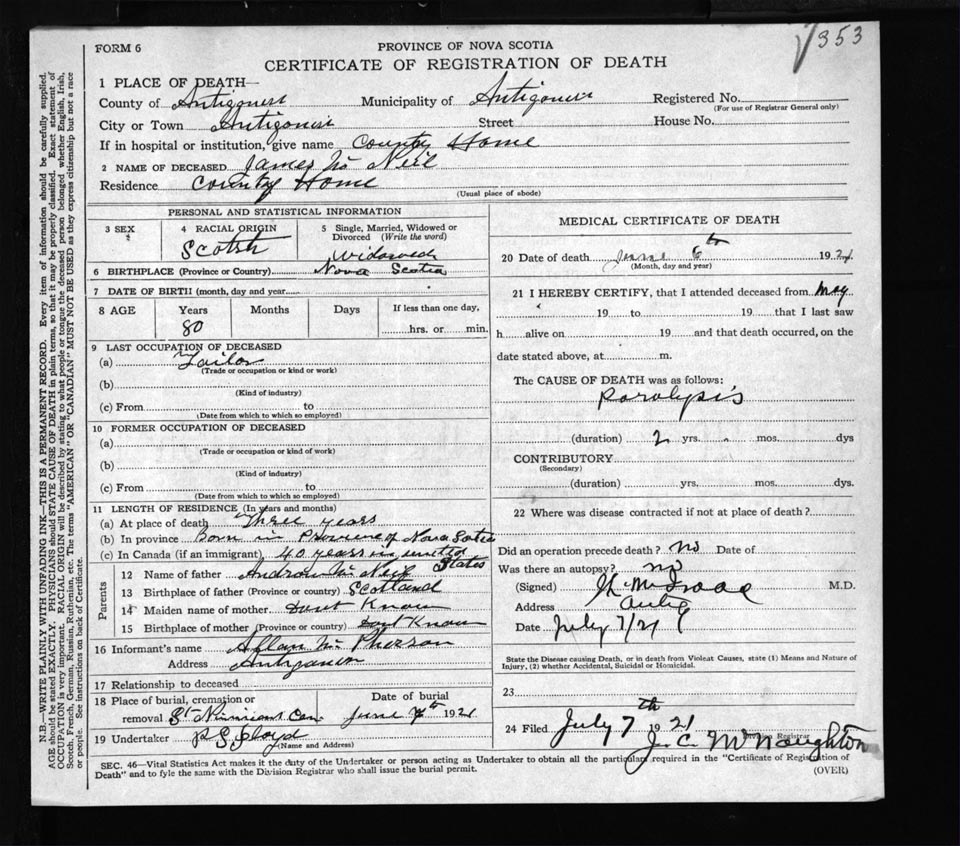 353
FORM 6
PROVINCE OF NOVA SCOTIA
CERTIFICATE OF REGISTRATION OF DEATH
1 PLACE OF DEATH—
County of Antigonish Municipality of Antigonish Registered No.
(For use of Registrar General only)
City or Town Antigonish Street House No.
If in hospital or institution, give name County Home
2 NAME OF DECEASED James Mc Neil
Residence County Home
(Usual place of abode)
PERSONAL AND STATISTICAL INFORMATION
3 SEX 4 RACIAL ORIGIN Scotch 5 Single, Married, Widowed or Divorced (Write the word) Widowed
6 BIRTHPLACE (Province or Country) Nova Scotia
7 DATE OF BIRTH (month, day and year
8 AGE Years 80 Months Days If less than one day, hrs. or min.
9 LAST OCCUPATION OF DECEASED
(a) Tailor
(Trade or occupation or kind or work)
(b)
(Kind of industry)
(c) From to
(Date from which to which so employed)
10 FORMER OCCUPATION OF DECEASED
(a)
(Trade or occupation or kind of work)
(b)
(Kind of industry)
(c) From to
(Date from which to which so employed)
11 LENGTH OF RESIDENCE (In years and months)
(a) At place of death Three years
(b) In province Born in Province of Nova Scotia
(c) In Canada (if an immigrant) 40 years in united States
Parents
12 Name of father Andrew Mc Neil
13 Birthplace of father (Province or country) Scotland
14 Maiden name of mother Dont Know
15 Birthplace of mother (Province or country) Dont Know
16 Informant's name Allan Mc Pherson
Address Antigonish
17 Relationship to deceased
18 Place of burial, cremation or removal St Ninnians Cem Date of burial June 7 1921
19 Undertaker P S Floyd
(Name and Address)
MEDICAL CERTIFICATE OF DEATH
20 Date of death June 6th 1921
(Month, day and year)
21 I HEREBY CERTIFY, that I attended deceased from May
19 to 19 that I last saw
h alive on 19 and that death occurred, on the
date stated above, at m.
The CAUSE OF DEATH was as follows:
Paralysis
(duration) 2 yrs. mos. dys
CONTRIBUTORY
(Secondary)
(duration) yrs. mos. dys.
22 Where was disease contracted if not at place of death?
Did an operation precede death? no Date of
Was there an autopsy? no
(Signed) M.D.
Address Antig
Date July 7/21
State the Disease causing Death, or in death from Violent Causes, state (1) Means and Nature of
Injury, (2) whether Accidental, Suicidal or Homicidal.
23
24 Filed July 7th 1921 J. C. McNaughton
Registrar
SEC. 46—Vital Statistics Act makes it the duty of the Undertaker or person acting as Undertaker to obtain all the particulars required in the "Certificate of Registration of
Death" and to fyle the same with the Division Registrar who shall issue the burial permit.
(OVER)
N.B.—WRITE PLAINLY WITH UNFADING INK—THIS IS A PERMANENT RECORD. Every item of information should be carefully supplied.
AGE should be stated EXACTLY. PHYSICIANS should STATE CAUSE OF DEATH in plain terms, so that it may be properly classified. Exact statement of
OCCUPATION is very important. RACIAL ORIGIN will be described by stating to what people or tongue the deceased person belonged whether English, Irish,
Scotch, French, German, Russian, Ruthenian, etc. The terms "AMERICAN" OR "CANADIAN" MUST NOT BE USED as they express citizenship but not a race
or people. See instructions on back of Certificate.